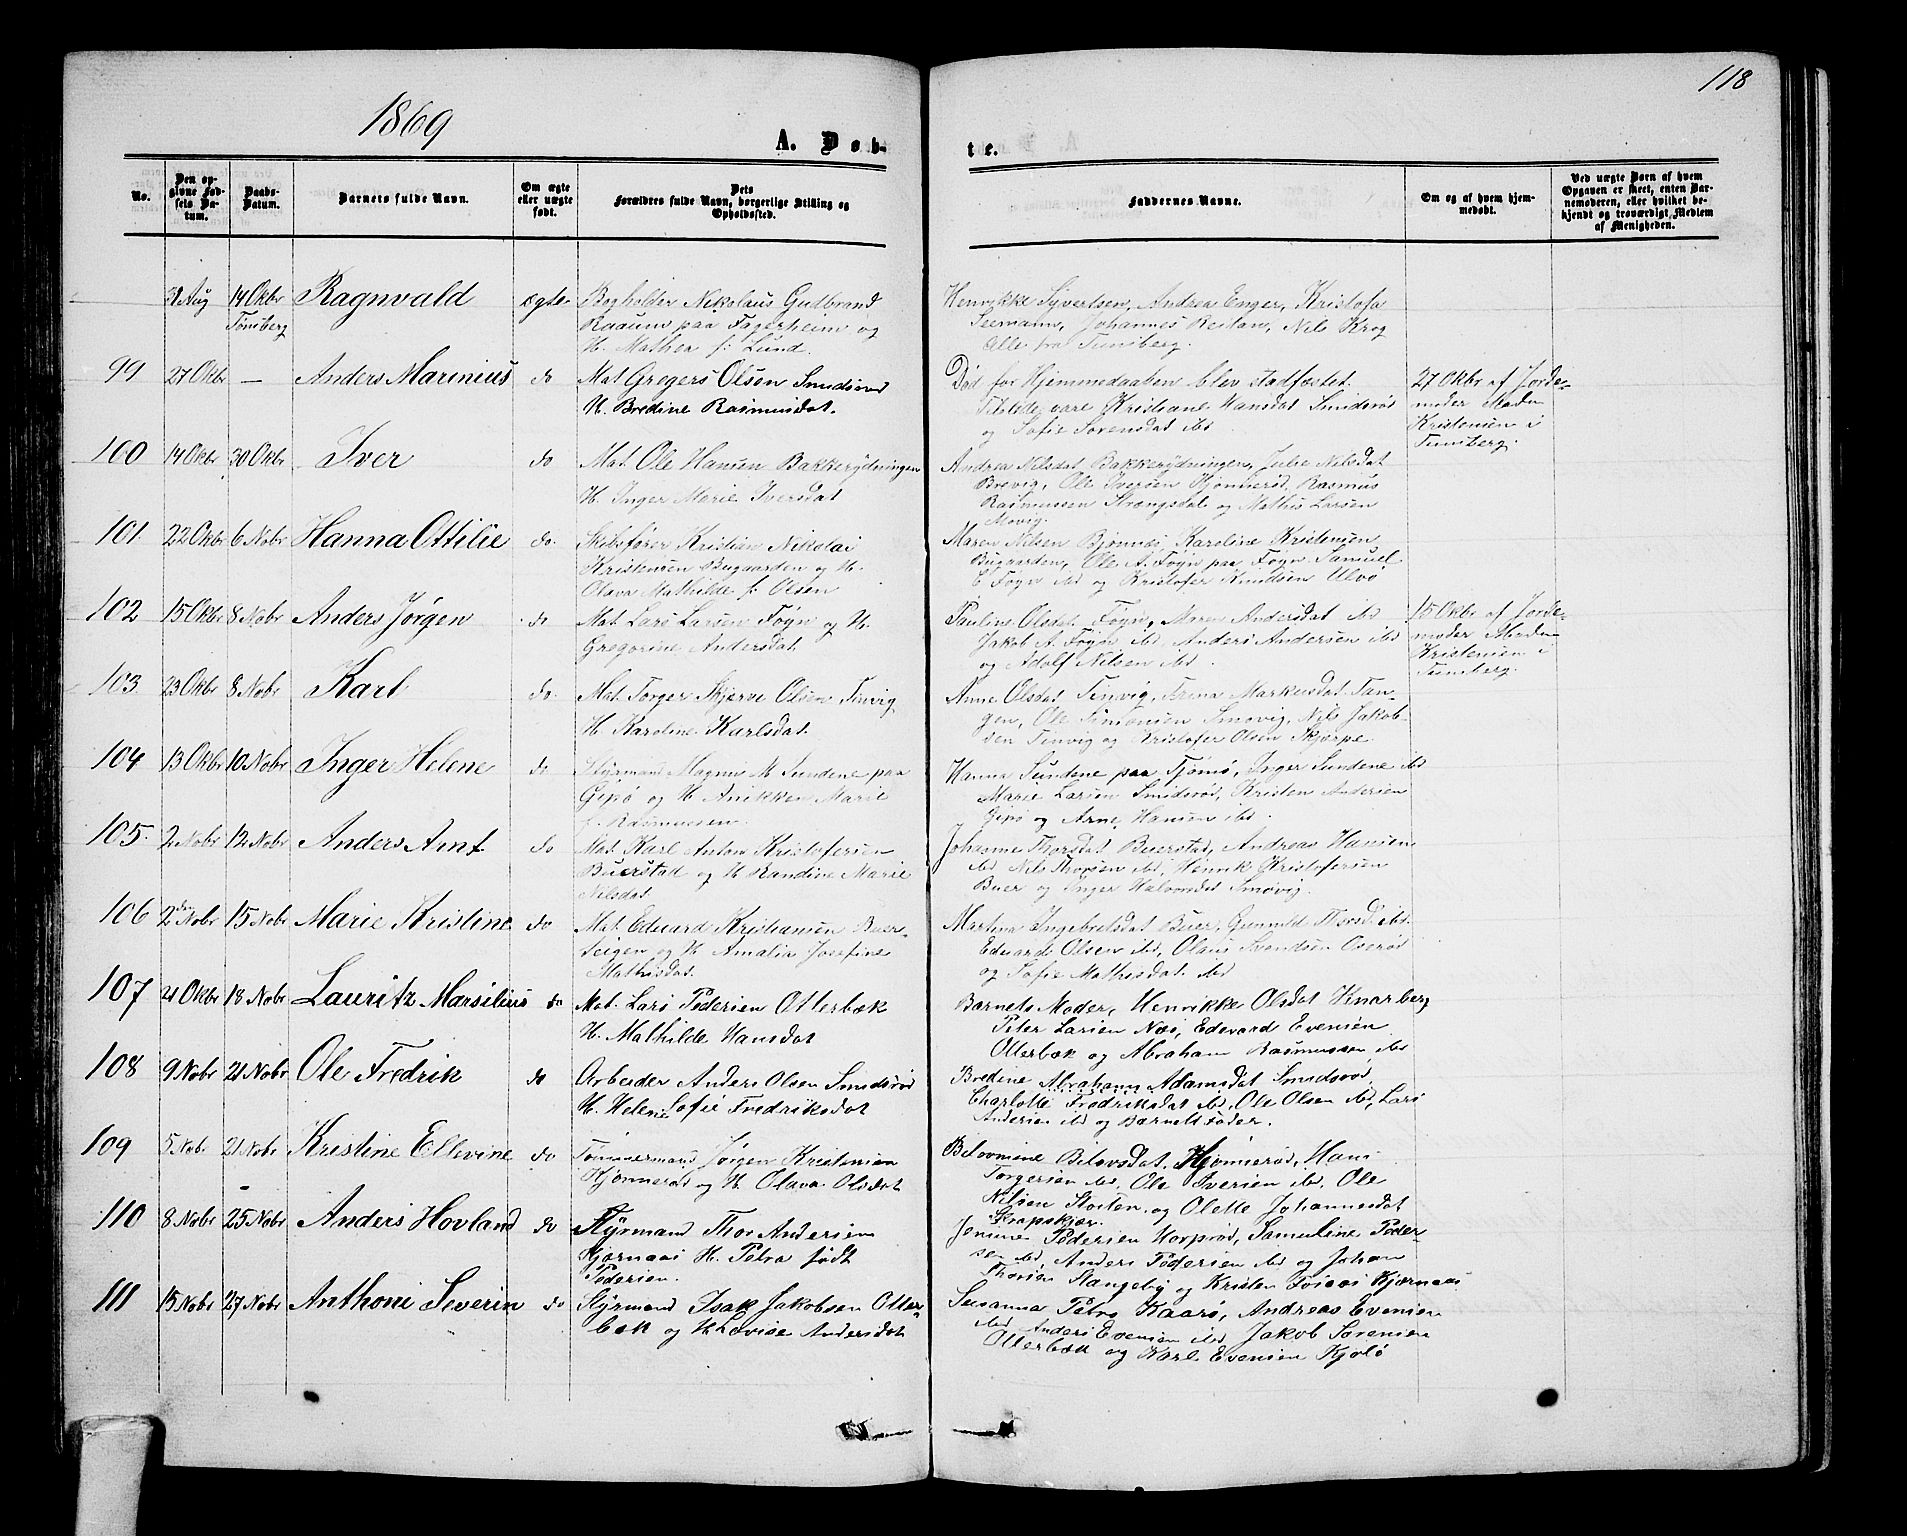 118
1869
A. Døb-
te.
No.
Den op-
givne Fød-
sels Da-
tum.
Daabs-
Datum.
Barnets fulde Navn.
Om ægte
eller uægte
født.
Dets
Forældres fulde Navn, borgerlige Stilling og
Opholdssted.
Faddernes Navne.
Om og af hvem hjem-
medøbt.
Ved uægte Børn af hvem
Opgaven er skeet, enten Bar-
nemoderen, eller hvilket be-
kjendt og troværdigt Medlem
af Menigheden.
Aug 14 Okbr Ragnvald ægte Bogholder Nikolaus Gudbrand
Tønsberg
Raaum paa Fagerheim og
H. Mathea f. Lund.
Henrikke Syvertsen, Andrea Enger, Kristofa
Seemann, Johannes Bestan, Nils Krog
Alle fra Tunsberg.
99 27 Okbr — Anders Marinius do Mat Gregers Olsen Smidsrød
H. Bredine Rasmusdat.
Død før Hjemmedaaben blev stadfæstet.
Tilstede vare Kristiane Hansdat Smidsrød
og Sofie Sørensdat ibd
27 Okbr af Jorde-
moder Madm
Kristensen i
Tunsberg.
100 14 Okbr 30 Okbr Iver do Mat. Ole Hansen Bakkerydningen
H. Inger Marie Iversdat
Andrea Nilsdat Bakkerydningen, Julie Nilsdat
Brevig, Ole Iversen Hjønnerød, Rasmus
Rasmussen Strengsdal og Mathis Larsen
Movig.
101. 22 Okbr 6 Nobr Hanna Ottilie do. Skibsfører Kristian Nikolai
Kristensen Bugaarden og H.
Olava Mathilde f. Olsen
Maren Nilsen Bjønnes Karoline Kristensen
Bugaarden, Ole A. Føyn paa Føyn Samuel
C Føyn ibd og Kristofer Knudsen Ulvø
102 15 Okbr 8 Nobr Anders Jørgen do Mat. Lars Larsen Føyn og H.
Gregorine Andersdat.
Pauline Olsdat. Føyn, Maren Andersdat ibd
Jakob A. Føyn ibd. Anders Andersen ibd
og Adolf Nilsen ibd.
15 Okbr af Jorde-
moder Madm
Kristensen i
Tunsberg.
103 23 Okbr 8 Nobr Karl do. Mat. Torger Skjerve Olsen Tinvig
H. Karoline Karlsdat.
Anne Olsdat Tinvig, Trina Markusdat Tan-
gen, Ole Simonsen Smøvig, Nils Jakob-
sen Tinvig og Kristofer Olsen Skjerpe.
104 13 Okbr 10 Nobr Inger Helene do Styrmand Magnus M Sundene paa
Gipø og H. Anikken Marie
f. Rasmussen.
Hanna Sundene paa Tjømø, Inger Sundene ibd
Marie Larsen Smidsrød, Kristen Andersen
Gipø og Arne Hansen ibd.
105. 2 Nobr 12 Nobr Anders Arnt. do Mat. Karl Anton Kristofersen
Buerstad og H Randine Marie
Nilsdat
Johanne Thorsdat Buerstad, Andreas Hansen
ibd Nils Thorsen ibd, Henrik Kristofersen
Buer og Inger Halvorsdat Smøvig.
106 2den Nobr 15 Nobr Marie Kristine do Mat. Eduard Kristiansen Buer-
steigen og H Amalia Josefine
Mathisdat
Martina Ingebretsdat Buer, Gunnild Thorsd. ibd.
Eduard Olsen ibd, Olaus Svendsen Oserød
og Sofie Mathisdat. ibd
107 21 Okbr 18 Nobr Lauritz Marsilius do Mat. Lars Pedersen Otterbæk
H. Mathilde Hansdat
Barnets Moder, Henrikke Olsdat Knarberg
Peter Larsen Næs, Edevard Evensen
Otterbæk og Abraham Rasmussen ibd
108 9 Nobr 21 Nobr Ole Fredrik do Arbeider Anders Olsen Smidsrød
H. Helene Sofie Fredriksdat
Bredine Abrahams Adamsdat Smidsrød,
Charlotte Fredriksdat ibd, Ole Olsen ibd, Lars
Andersen ibd og Barnets Fader.
109 5 Nobr 21 Nobr Kristine Ellevine do Tømmermand Jørgen Kristensen
Hjønnerød og H. Olava Olsdat
Belovmine Belovsdat. Hjønnerød, Hans
Torgersen ibd, Ole Iversen ibd, Ole
Nilsen Stolten og Olette Johannesdat
Krapskjær.
110 8 Nobr 25 Nobr Anders Hovland do Styrmand Thor Andersen
Kjærnaas H. Petra født
Pedersen.
Jensine Pedersen Horprød, Samuline Peder-
sen ibd, Anders Pedersen ibd og Johan
Thorsen Slangeby og Kristen Tobias Kjærnaas
111 15 Nobr 27 Nobr Anthoni Severin do Styrmand Isak Jakobsen Otter-
bæk og H Lovise Andersdat
Susanna Petra Kaarø, Andreas Evensen
ibd Anders Evensen ibd, Jakob Sørensen
Otterbæk og Karl Evensen Kjølø